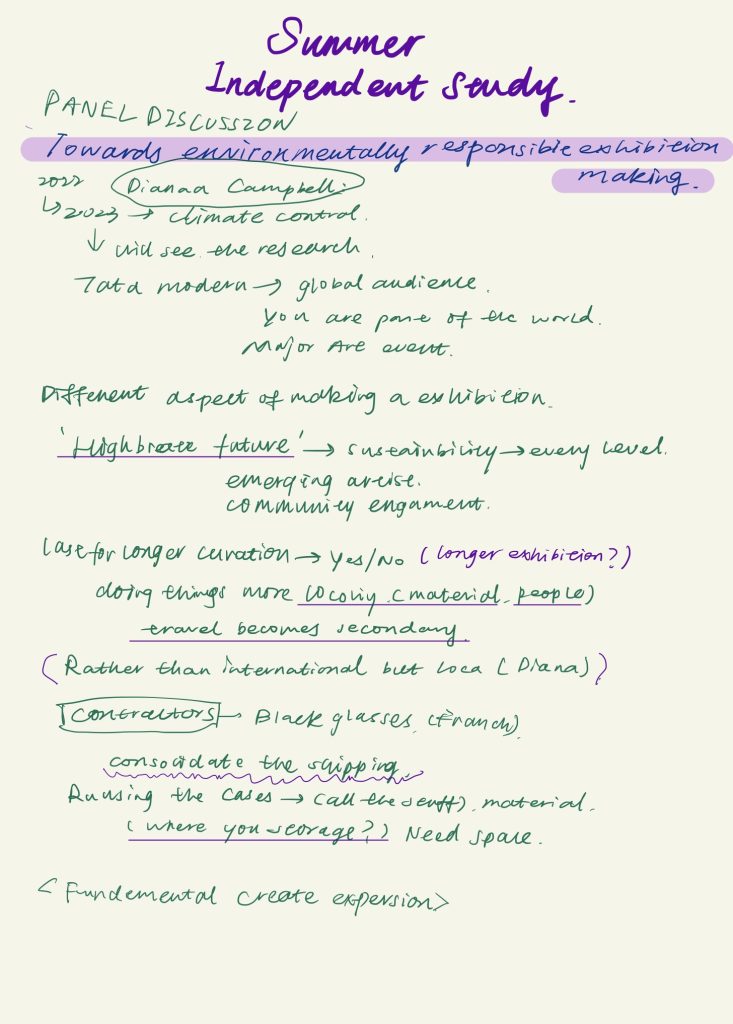 Summer
Independent study.
PANEL DISCUSSION
Towards environmentally responsible exhibition
making.
2022 Dianaa Campbell.
↳ 2023 → climate control.
↓ will see the research.
Tata modern → global audience.
You are part of the world.
Major Art event.
Different aspect of making a exhibition.
'Highbreat future' → sustainbility → every level.
emerging artist.
community engament.
Case for longer curation → Yes/No (longer exhibition?)
doing things more locoly. (material. people)
travel becomes secondary.
(Rather than international but loca (Diana))
Contractors → Black glasses. (Franch)
consocidate the shipping.
Ruusing the cases → (all the stuff). material.
(where you storage?) Need space.
<Fundemental create expersion>